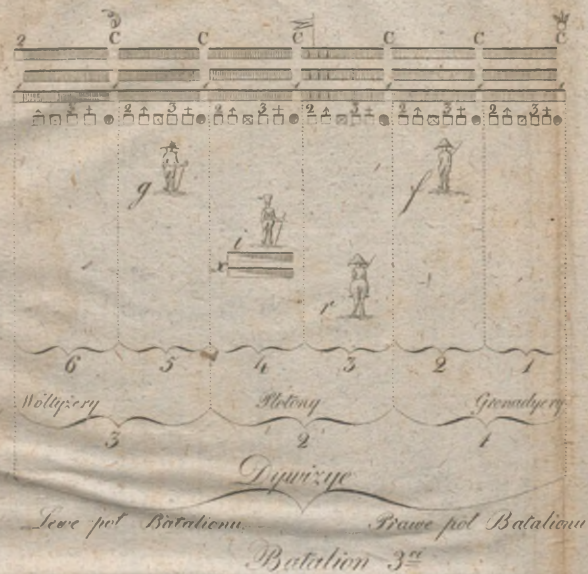 2 C C C C C C
2 3 2 3 2 3 2 3 2 3
g f
i
r
6 5 4 3 2 1
Woltyżery Plotony Grenadyery
3 2 1
Dywizye
Lewe pół Batalionu. Prawe pół Batalionu
Batalion 3ci